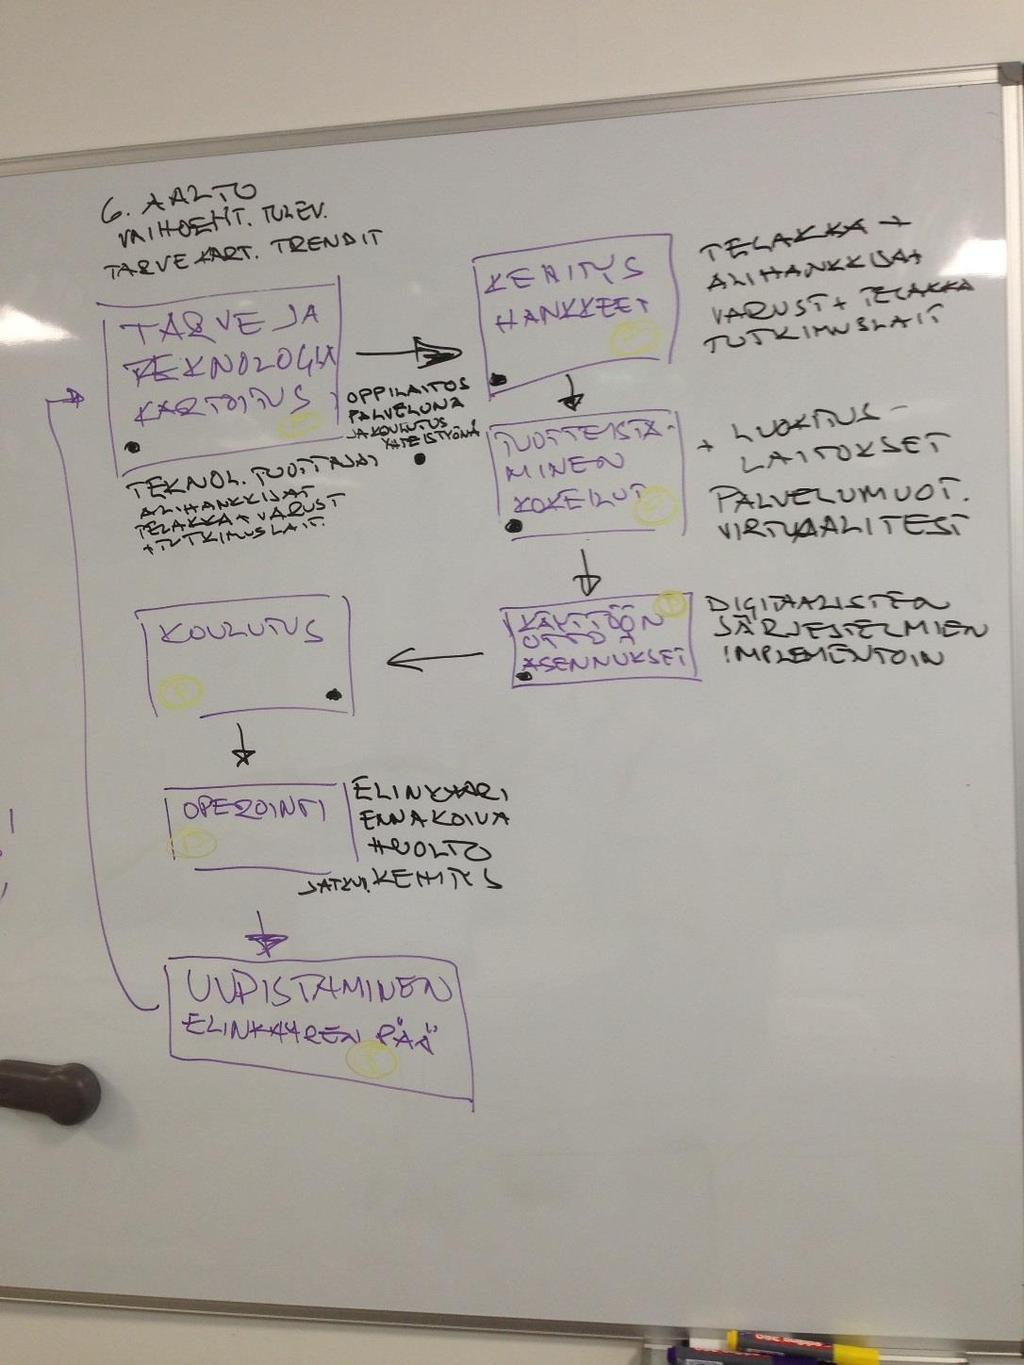 6. AALTO
VAIHOEHT. TULEV.
TARVE KART. TRENDIT
TARVE JA
TEKNOLOGIA
KARTOITUS
TEKNOL. TUOTTAJAT
ALIHANKKIJAT
TELAKKA + VARUST
+ TUTKIMUSLAIT.
OPPILAITOS
PALVELUNA
JA KOULUTUS
YHTEISTYÖNÄ
KEHITYS
HANKKEET
TELAKKA +
ALIHANKKIJAT
VARUST + TELAKKA
TUTKIMUSLAIT
TUOTTEISTA-
MINEN
KOKEILUT
+ LUOKITUS-
LAITOKSET
PALVELUMUOT.
VIRTUAALITEST
KÄYTTÖÖN
OTTO JA
ASENNUKSET
DIGITAALISTEN
JÄRJESTELMIEN
IMPLEMENTOIN
KOULUTUS
OPEROINTI
ELINKAARI
ENNAKOIVA
HUOLTO
JATKU. KEHITYS
UUDISTAMINEN
ELINKAAREN PÄÄ